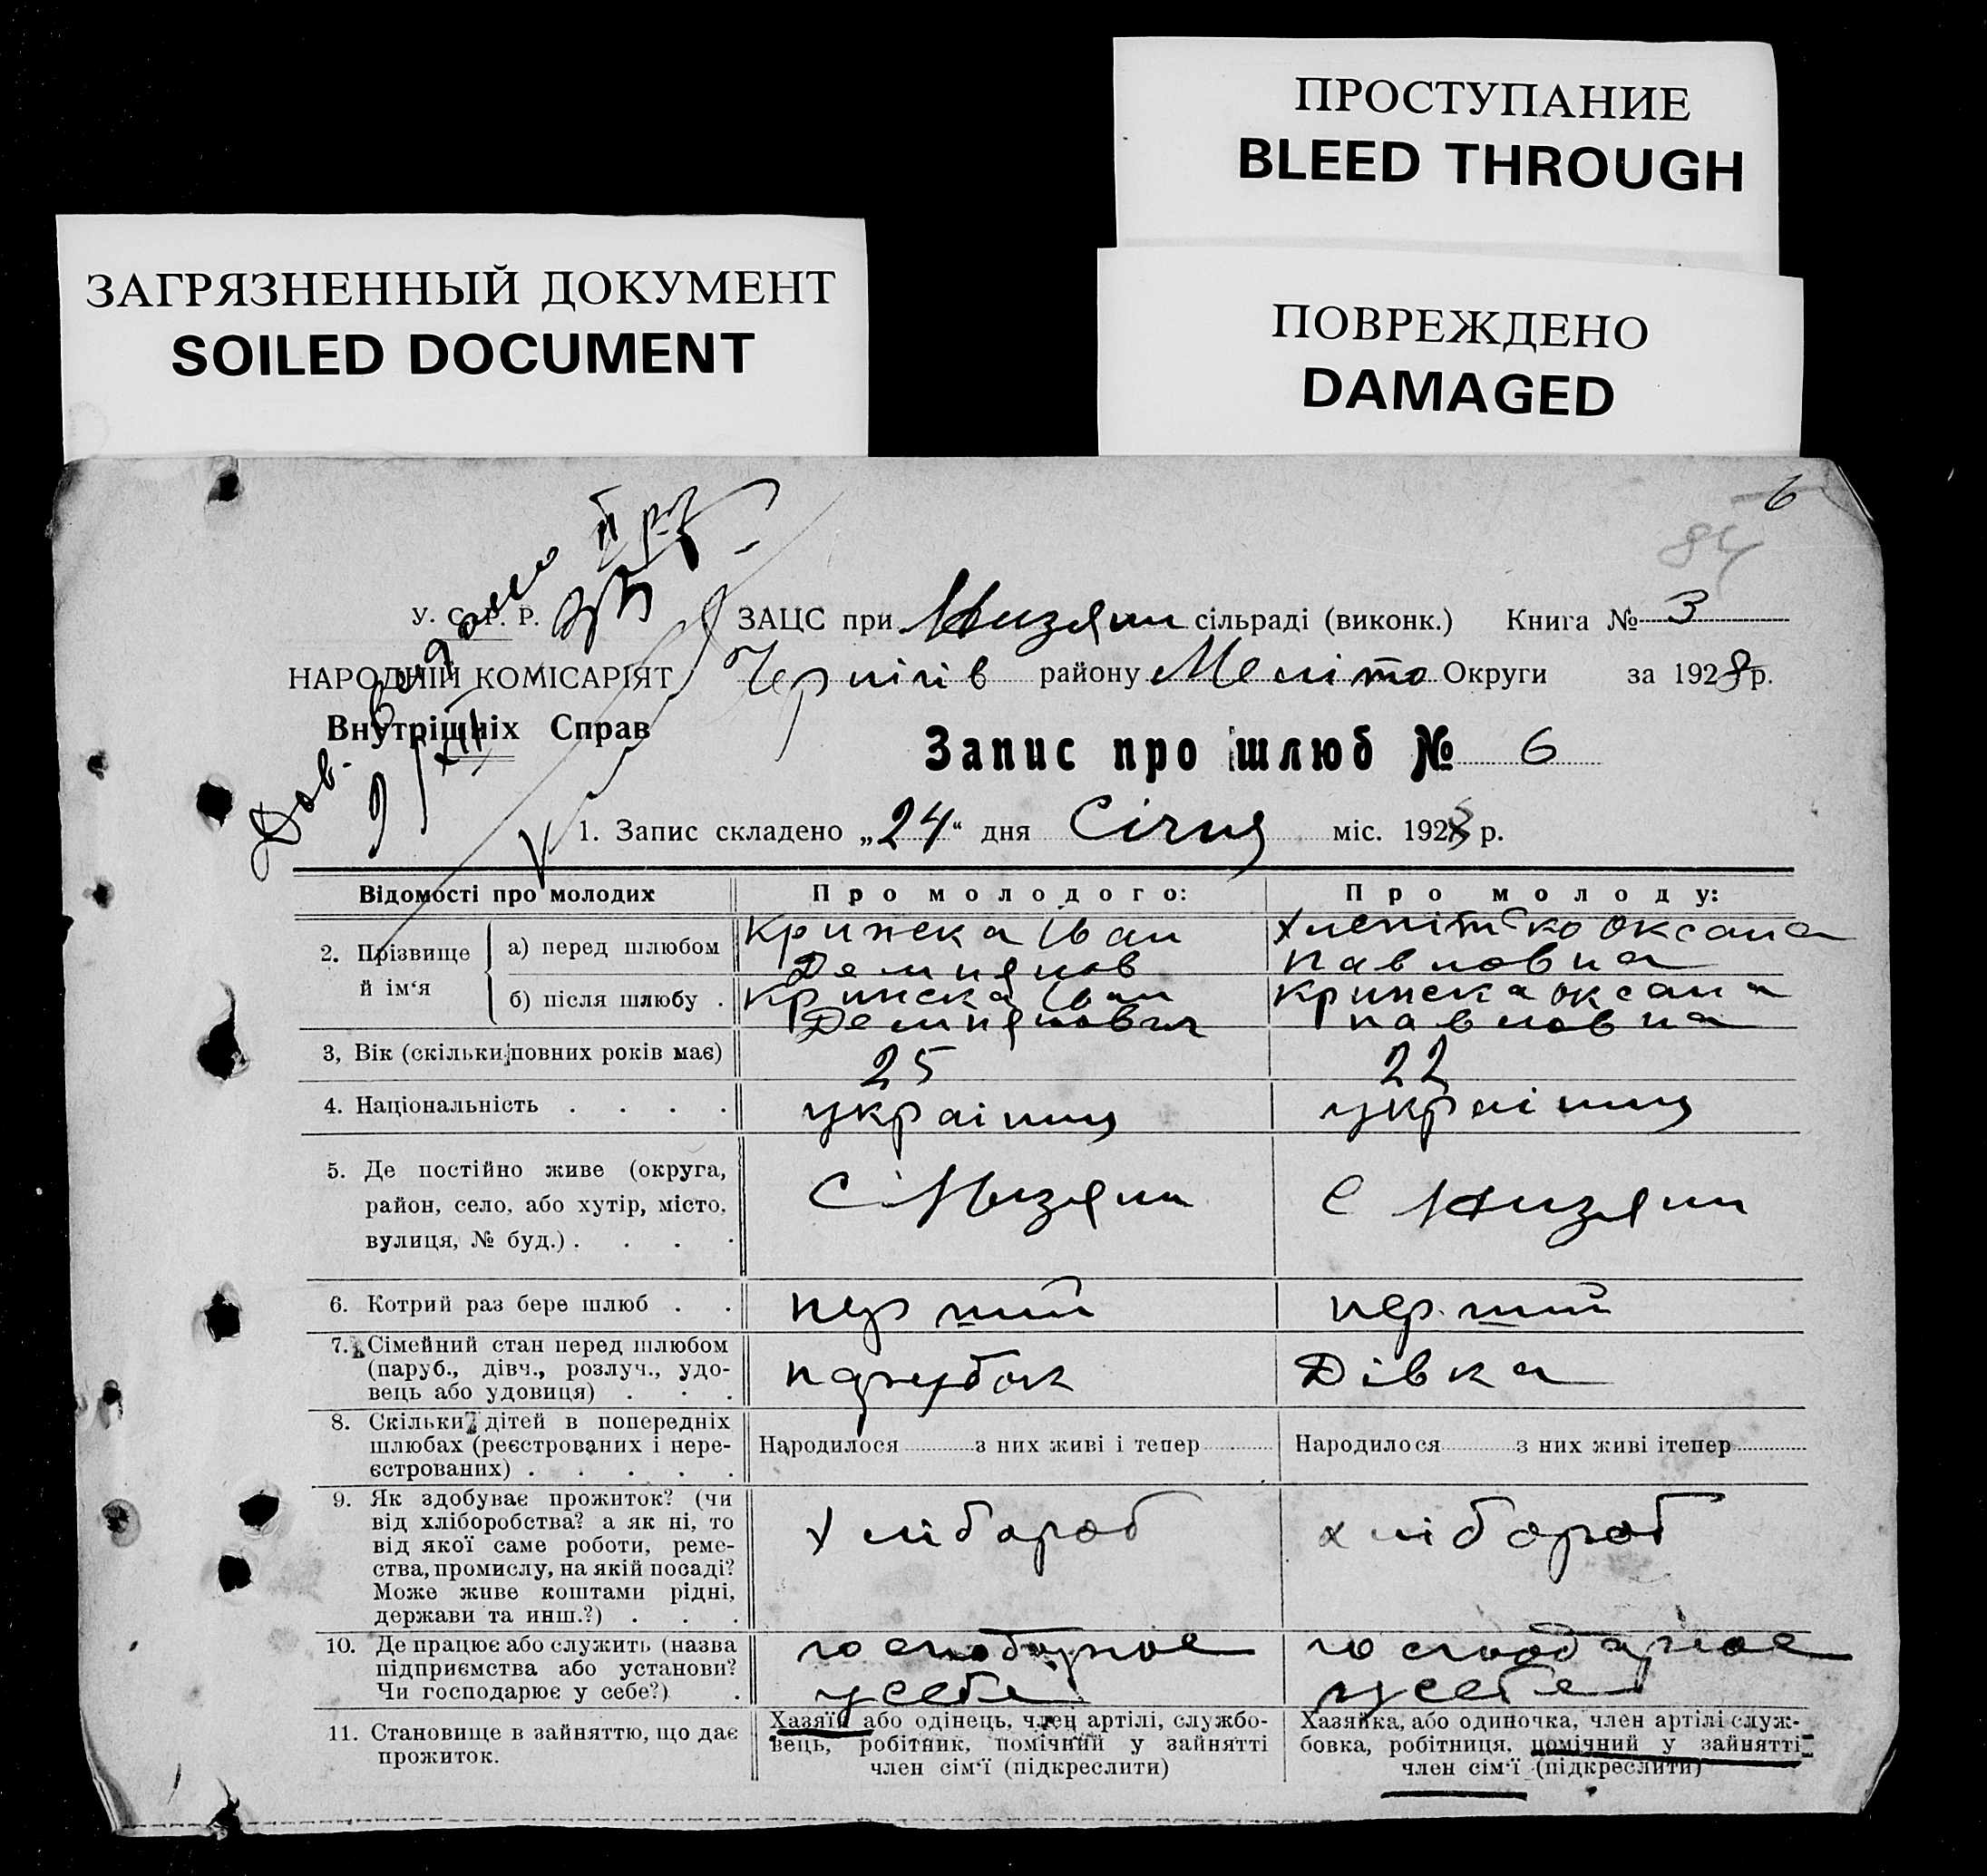 ПРОСТУПАНИЕ
BLEED THROUGH
ЗАГРЯЗНЕННЫЙ ДОКУМЕНТ
SOILED DOCUMENT
ПОВРЕЖДЕНО
DAMAGED
6
84
У. С. Р. Р. ЗАЦС при Низяни сільраді (виконк.) Книга № 3
НАРОДНІЙ КОМІСАРІЯТ Чернігів району Меліто Округи за 1928 р.
Внутрішніх Справ
Запис про шлюб № 6
1. Запис складено „24“ дня Січня міс. 1928 р.
Відомості про молодих Про молодого: Про молоду:
2. Прізвище й ім‘я
а) перед шлюбом Крижска Іван Демянов Оксана Павловна
б) після шлюбу . Крижска Іван Демянович Крижска Оксана Павловна
3, Вік (скільки повних років має) 25 22
4. Національність . . . . україниц україниц
5. Де постійно живе (округа,
район, село, або хутір, місто,
вулиця, № буд.) . . . . С Низяни С Низяни
6. Котрий раз бере шлюб . . перший перший
7. Сімейний стан перед шлюбом
(паруб., дівч., розлуч., удо-
вець або удовиця) . . . парубок Дівка
8. Скільки дітей в попередніх
шлюбах (реєстрованих і нере-
єстрованих) . . . . . Народилося з них живі і тепер Народилося з них живі ітепер
9. Як здобуває прожиток? (чи
від хліборобства? а як ні, то
від якої саме роботи, реме-
ства, промислу, на якій посаді?
Може живе коштами рідні,
держави та инш.?) . . . хлібороб хлібороб
10. Де працює або служить (назва
підприємства або установи?
Чи господарює у себе?) . господарює усебе господарює усебе
11. Становище в зайняттю, що дає
прожиток.
Хазяїн або одінець, член артілі, службо-
вець, робітник, помічний у зайнятті
член сім‘ї (підкреслити)
Хазяйка, або одиночка, член артілі служ-
бовка, робітниця, помічний у зайнятті
член сім‘ї (підкреслити)